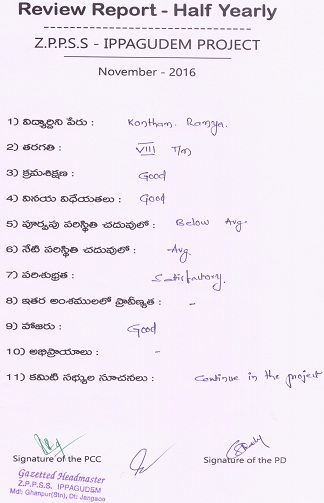 Review Report - Half Yearly
Z.P.P.S.S - IPPAGUDEM PROJECT
November - 2016
1) విద్యార్థిని పేరు : Kontham. Ramya.
2) తరగతి : VIII T/m
3) క్రమశిక్షణ : Good
4) వినయ విధేయతలు : Good
5) పూర్వపు పరిస్థితి చదువులో : Below Avg.
6) నేటి పరిస్థితి చదువులో : Avg.
7) పరిశుభ్రత : Satisfactory.
8) ఇతర అంశములలో ప్రావీణ్యత : -
9) హాజరు : Good
10) అభిప్రాయాలు : -
11) కమిటి సభ్యుల సూచనలు : Continue in the project
Signature of the PCC Signature of the PD
Gazetted Headmaster
Z.P.P.S.S. IPPAGUDEM
Mdl: Ghanpur(Stn), Dt: Jangaon